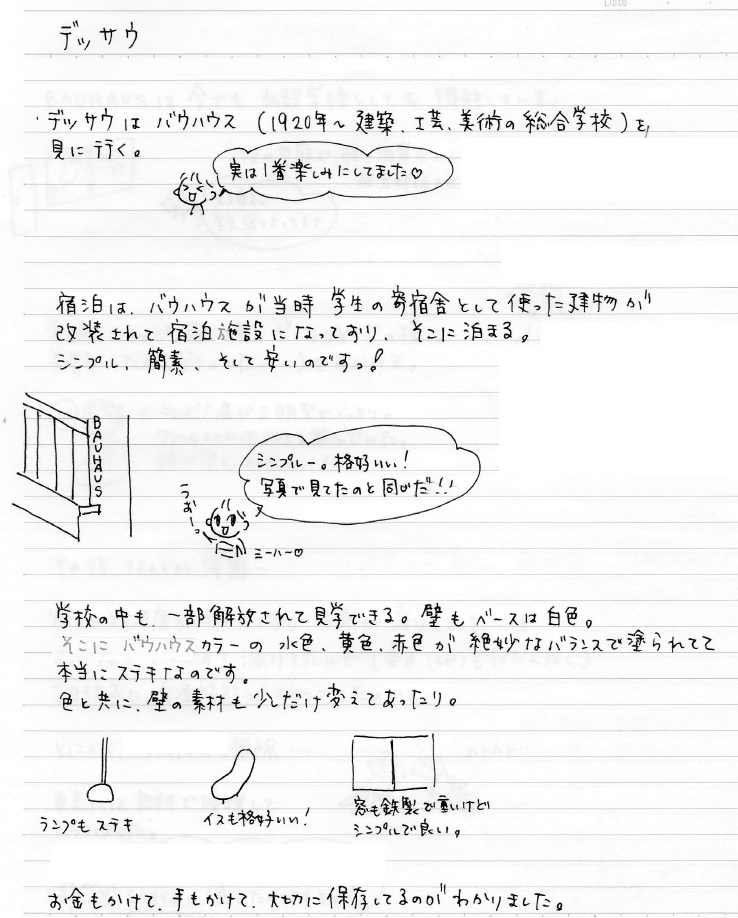 デッサウ
・デッサウは バウハウス (1920年～建築、工芸、美術の総合学校)を、
見に行く。
実は1番楽しみにしてました♡
宿泊は、バウハウスが当時 学生の寄宿舎として使った建物が
改装されて宿泊施設になっており、そこに泊まる。
シンプル、簡素、そして安いのですっ!
BAUHAUS
シンプルー。格好いい!
写真で見てたのと同じだ!!
うおーっ
ミーハー♡
学校の中も、一部解放されて見学できる。壁もベースは白色。
そこにバウハウスカラーの 水色、黄色、赤色が 絶妙なバランスで塗られてて
本当にステキなのです。
色と共に、壁の素材も少しだけ変えてあったり。
ランプもステキ
イスも格好いい!
窓も鉄製で重いけど
シンプルで良い。
お金もかけて、手もかけて、大切に保存してるのがわかりました。